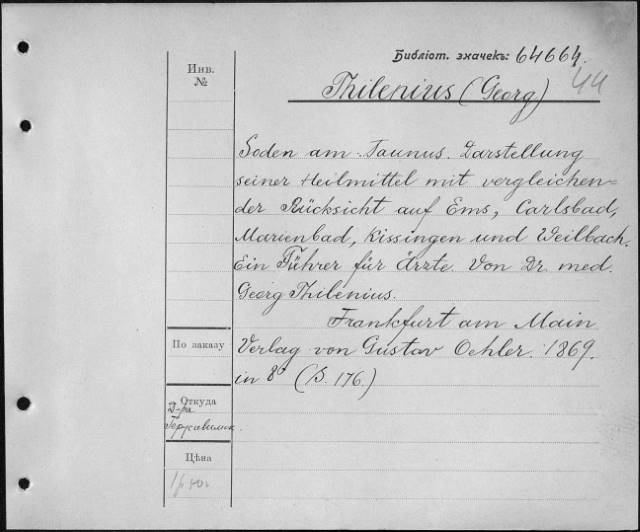 Библіот. значекъ: 64664.
44
Инв.
№
Thilenius (Georg)
Soden am Taunus. Darstellung
seiner Heilmittel mit vergleichen=
der Rücksicht auf Ems, Carlsbad,
Marienbad, Kissingen und Weilbach.
Ein Führer für Ärzte. Von Dr. med.
Georg Thilenius.
Frankfurt am Main
По заказу
Verlag von Gustav Oehler. 1869.
in 8° (S. 176.)
Откуда
Д-ра
Цѣна